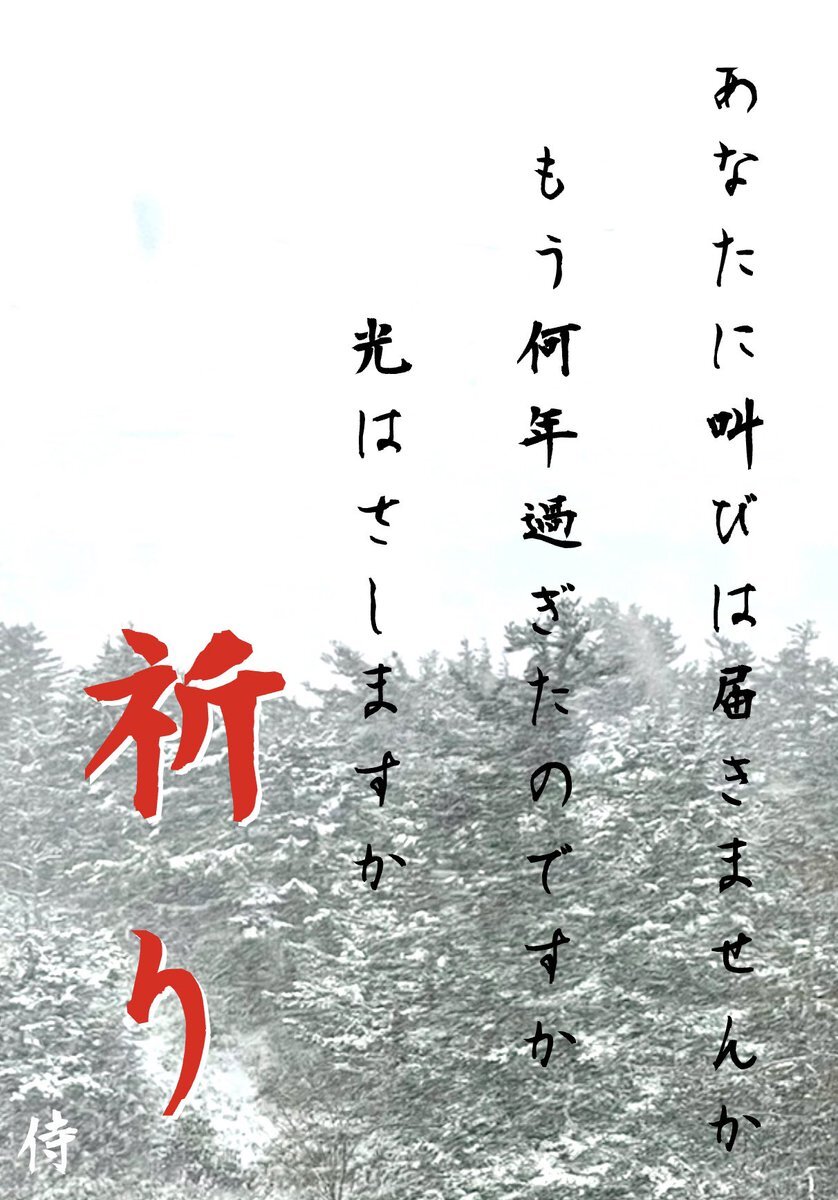 あなたに叫びは届きませんか
もう何年過ぎたのですか
光はさしますか
祈り
侍